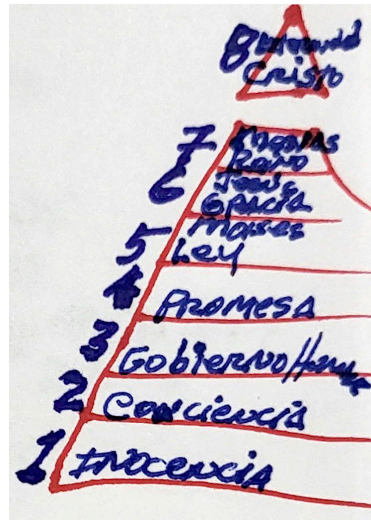 8
Cristo
7
Reino
6 Jesus
Gracia
Moises
5 Ley
4 Promesa
3 Gobierno
2 Conciencia
1 Inocencia